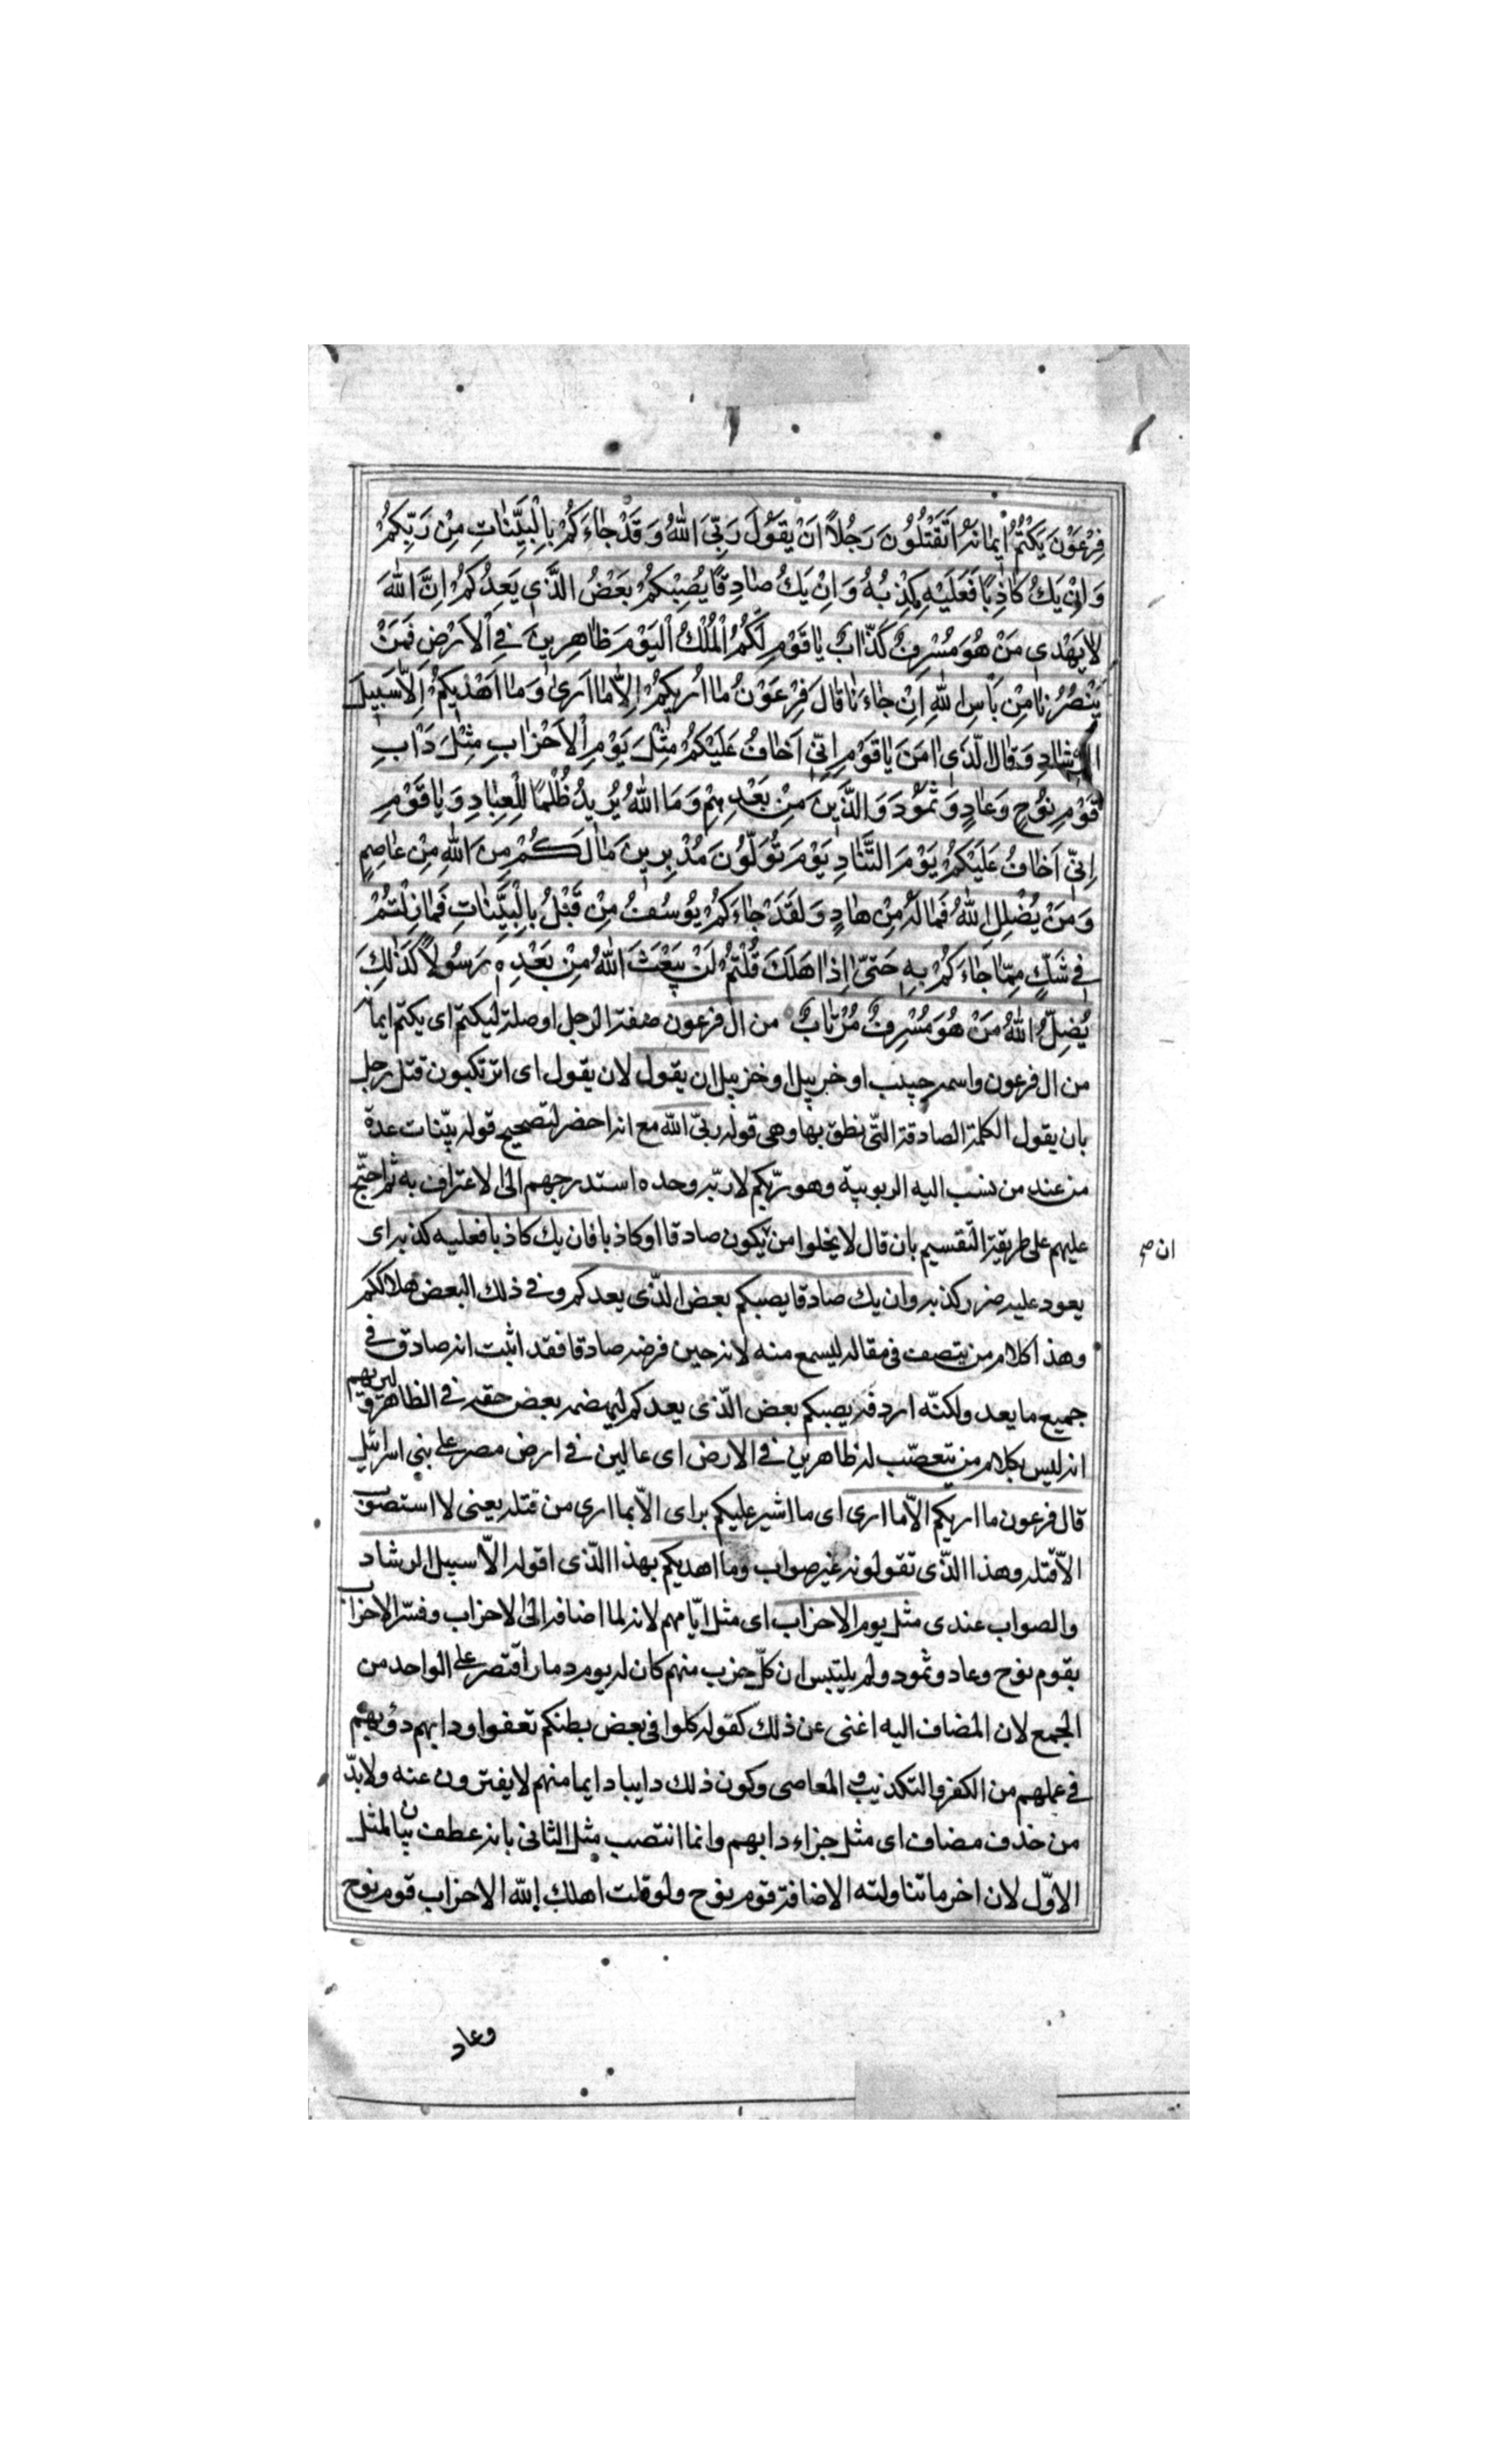 فِرْعَوْنَ يَكْتُمُ اِيمانَهُ اَتَقْتُلُونَ رَجُلاً اَنْ يَقُولَ رَبِّيَ اللهُ وَقَدْ جاءَكُمْ بِالْبَيِّناتِ مِنْ رَبِّكُمْ
وَاِنْ يَكُ كاذِبًا فَعَلَيْهِ كِذْبُهُ وَاِنْ يَكُ صادِقًا يُصِبْكُمْ بَعْضُ الَّذي يَعِدُكُمْ اِنَّ اللهَ
لا يَهْدي مَنْ هُوَ مُسْرِفٌ كَذّابٌ يا قَوْمِ لَكُمُ الْمُلْكُ الْيَوْمَ ظاهِرينَ فِي الْاَرْضِ فَمَنْ
يَنْصُرُنا مِنْ بَأْسِ اللهِ اِنْ جاءَنا قالَ فِرْعَوْنُ ما اُريكُمْ اِلاّ ما اَرى وَما اَهْديكُمْ اِلاّ سَبيلَ
الرَّشادِ وَقالَ الَّذي امَنَ يا قَوْمِ اِنّي اَخافُ عَلَيْكُمْ مِثْلَ يَوْمِ الْاَحْزابِ مِثْلَ دَاْبِ
قَوْمِ نُوحٍ وَعادٍ وَثَمُودَ وَالَّذينَ مِنْ بَعْدِهِمْ وَمَا اللهُ يُريدُ ظُلْمًا لِلْعِبادِ وَيا قَوْمِ
اِنّي اَخافُ عَلَيْكُمْ يَوْمَ التَّنادِ يَوْمَ تُوَلُّونَ مُدْبِرينَ مالَكُمْ مِنَ اللهِ مِنْ عاصِمٍ
وَمَنْ يُضْلِلِ اللهُ فَمالَهُ مِنْ هادٍ وَلَقَدْ جاءَكُمْ يُوسُفُ مِنْ قَبْلُ بِالْبَيِّناتِ فَمازِلْتُمْ
في شَكٍّ مِمّا جاءَكُمْ بِهِ حَتّى اِذا هَلَكَ قُلْتُمْ لَنْ يَبْعَثَ اللهُ مِنْ بَعْدِه رَسُولاً كَذلِكَ
يُضِلُّ اللهُ مَنْ هُوَ مُسْرِفٌ مُرْتابٌ من ال فرعون صفة الرجل او صلة ليكتم اى يكتم ايمانه
من ال فرعون واسمه حبيب او خربيل او حزبيل ان يقول لان يقول اى اترتكبون قتل رجل
بان يقول الكلمة الصادقة التّى نطق بها وهى قوله ربّى الله مع انه احضر لتصحيح قوله بيّنات عدة
من عند من نسب اليه الربوبية وهو ربّكم لا ربّه وحده استدرجهم الى الاعتراف به ثم احتّج
عليهم على طريقة التقسيم بان قال لا يخلوا من يكون صادقا او كاذبا فان يك كاذبا فعليه كذبه اى
ان صح
يعود عليه ضرر كذبه وان يك صادقا يصبكم بعض الذّى يعدكم وفى ذلك البعض هلاككم
وهذا كلام من يتصف فى مقاله ليسمع منه لانه حين فرضه صادقا فقد اثبت انه صادق فى
جميع ما يعد ولكنّه اردفه يصبكم بعض الّذى يعدكم ليهضمه بعض حقه فى الظاهر و ليريهم
انه ليس بكلام من يتعصّب له ظاهرين فى الارض اى عالين فى ارض مصر على بنى اسرائيل
قال فرعون ما اريكم الاّ ما ارى اى ما اشير عليكم براى الاّ بما ارى من قتله يعنى لا استصوب
الاّ قتله وهذا الّذى تقولونه غير صواب وما اهديكم بهذا الّذى اقوله الاّ سبيل الرشاد
والصواب عندى مثل يوم الاحزاب اى مثل ايّامهم لانه لما اضافه الى الاحزاب وفسّر الاحزاب
بقوم نوح وعاد وثمود ولم يلتبس ان كلّ حزب منهم كان له يوم دمار اقتصر على الواحد من
الجمع لان المضاف اليه اغنى عن ذلك كقوله كلوا فى بعض بطنكم تعفوا ودابهم دؤبهم
فى عملهم من الكفر والتكذيب و المعاصى وكون ذلك دايبا دايما منهم لا يفترون عنه ولا بدّ
من حذف مضاف اى مثل جزاء دابهم وانما انتصب مثل الثانى بانه عطف بيان لمثل
الاوّل لان اخر ما تناولته الاضافة قوم نوح ولو قلت اهلك الله الاحزاب قوم نوح
وعاد